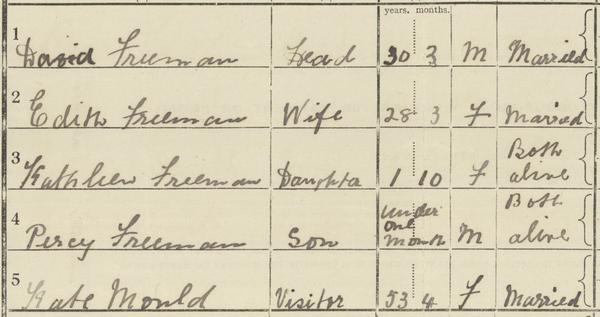 years. months.
1 David Freeman Head 30 3 M Married
2 Edith Freeman Wife 28 3 F Married
3 Kathleen Freeman Daughter 1 10 F Both alive
4 Percy Freeman Son under one month M Both alive
5 Kate Mould Visitor 53 4 F Married